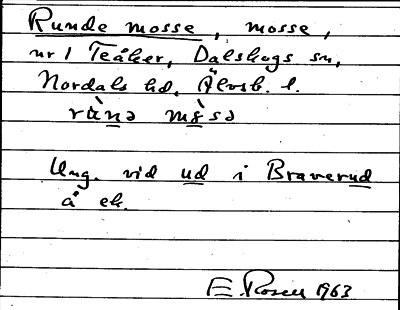 Runde mosse, mosse,
nr 1 Teåker, Dalskogs sn,
Nordals hd, Älvsb. l.
rùnə mòsə
Ung. vid ud i Braverud
å ek.
E. Rosell 1963